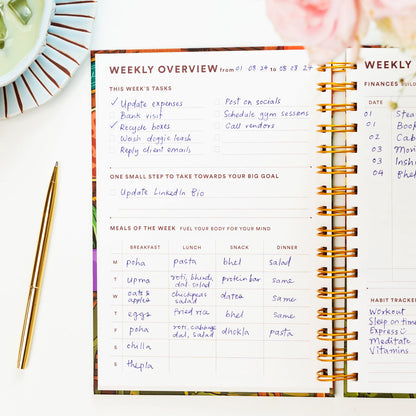 WEEKLY OVERVIEW from 01 08 24 to 05 28 24
THIS WEEK'S TASKS
✓ Update expenses
Bank visit
✓ Recycle boxes
Wash doggie leash
Reply client emails
Post on socials
Schedule gym sessions
Call vendors
ONE SMALL STEP TO TAKE TOWARDS YOUR BIG GOAL
Update LinkedIn Bio
MEALS OF THE WEEK FUEL YOUR BODY FOR YOUR MIND
BREAKFAST LUNCH SNACK DINNER
M poha pasta bhel salad
T upma roti, bhindi, dal, salad protein bar same
W oats & apples chickpeas salad dates same
T eggs fried rice bhel same
F poha roti, cabbage dal, salad dhokla pasta
S chilla
S thepla
WEEKLY
FINANCES
DATE
01
01
02
03
03
04
HABIT TRACKER
Workout
Sleep on time
Express
Meditate
Vitamins